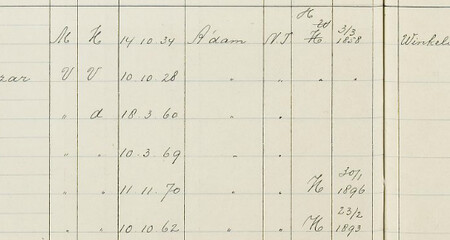 M H 14 10 34 A'dam N.I H ed H 3/3 1858 Winkel
zar V V 10 10 28 " " " "
" d 18 3 60 " "
" " 10 3 69 " "
" " 11 11 70 " " H 30/1 1896
" " 10 10 62 " " H 23/2 1893